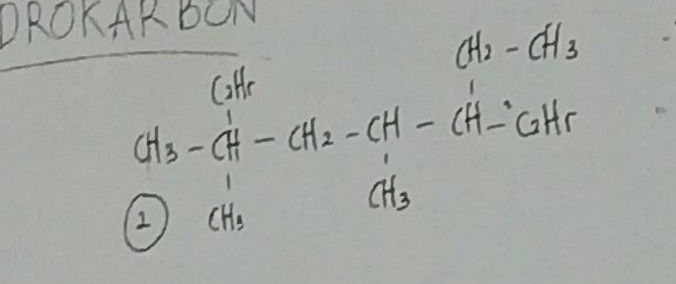 DROKARBON
CH2 - CH3
C2H5
CH3 - CH - CH2 - CH - CH - C2H5
CH3
2 CH3